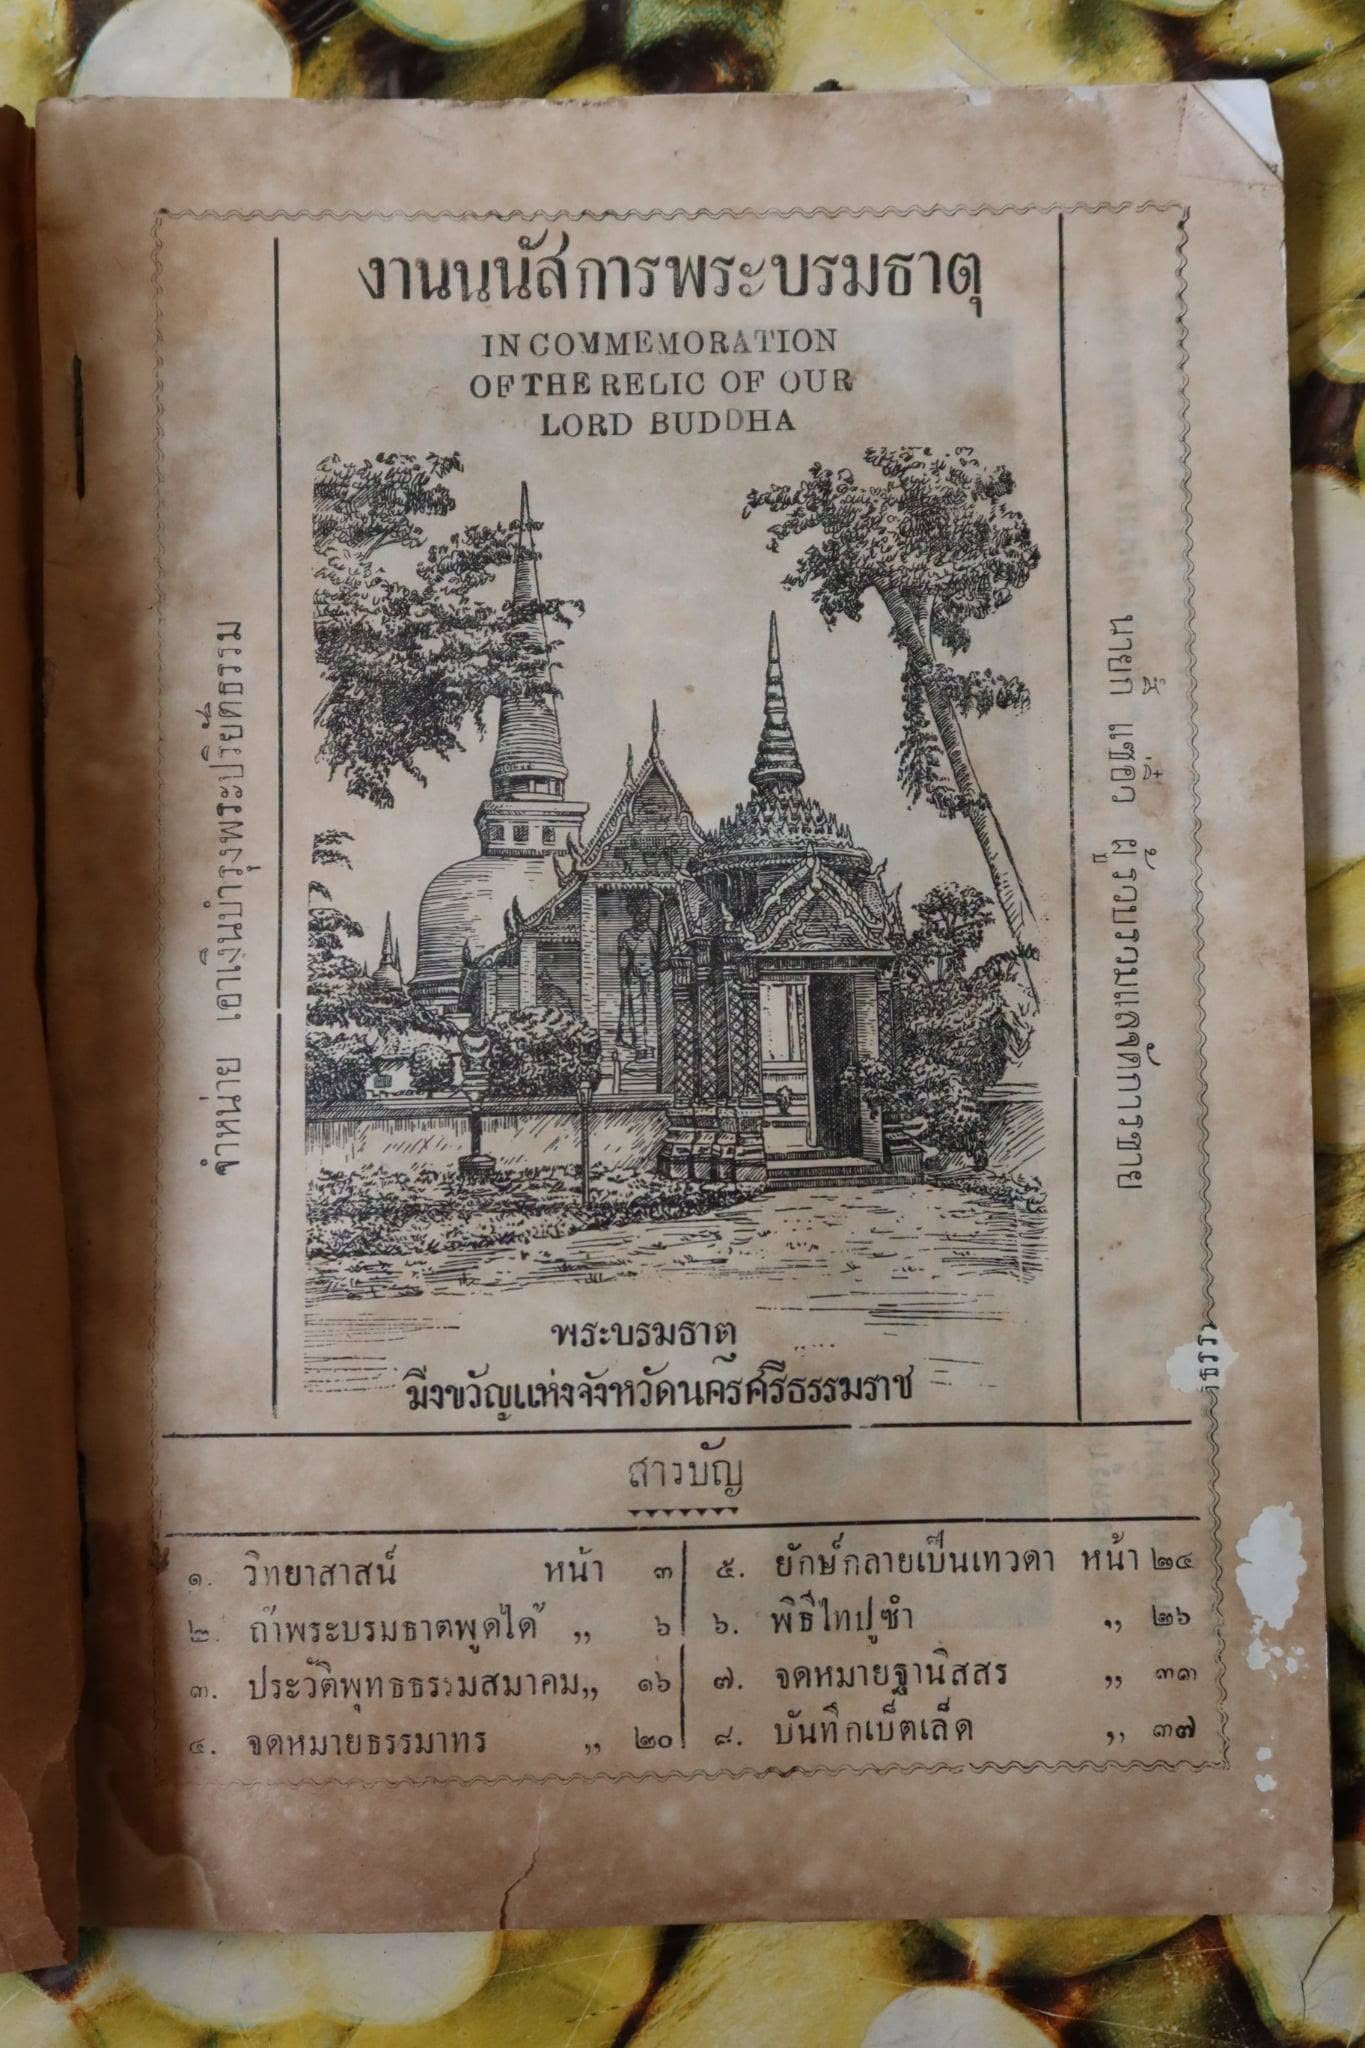 งานนนัสการพระบรมธาตุ
IN COMMEMORATION
OF THE RELIC OF OUR
LORD BUDDHA
จำหน่าย เอาเงินบำรุงพระปริยัติธรรม
นายก ซิ้ แซ่อิ๋ว ผู้รวบรวมแลจัดการขาย
พระบรมธาตุ
มิ่งขวัญแห่งจังหวัดนครศรีธรรมราช
ธรร
สารบัญ
๑. วิทยาสาสน์ หน้า ๓
๒. ถ้าพระบรมธาตุพูดได้ ,, ๖
๓. ประวัติพุทธธรรมสมาคม ,, ๑๖
๔. จดหมายธรรมาทร ,, ๒๐
๕. ยักษ์กลายเป็นเทวดา หน้า ๒๔
๖. พิธีไทปูซำ ,, ๒๖
๗. จดหมายฐานิสสร ,, ๓๓
๘. บันทึกเบ็ตเล็ด ,, ๓๗